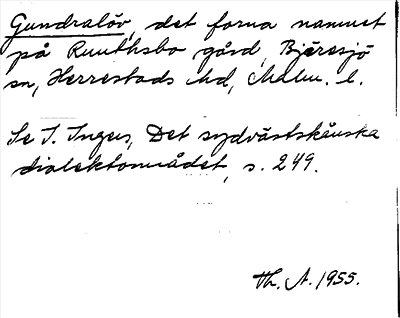 Gundralöv, det forna namnet
på Ruuthsbo gård, Bjäresjö
sn, Herrestads hd, Malm. l.
Se I. Ingers, Det sydvästskånska
dialektområdet, s. 249.
Th. A. 1955.